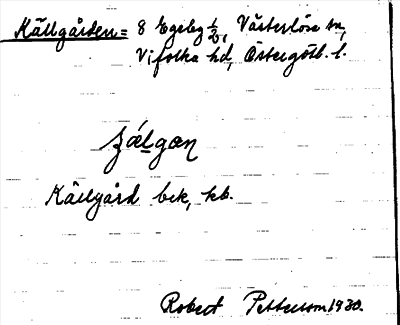 Källgården = 8 Egeby ½, Västerlösa sn,
Vifolka hd, Östergötl. l.
Källgård bek, kb.
Robert Pettersson 1930.